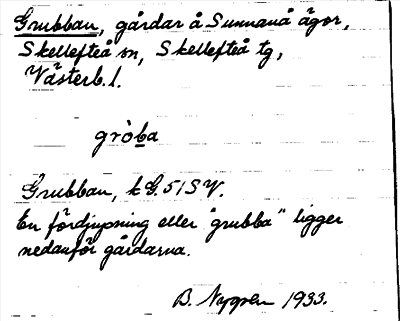 Grubban, gårdar å Sunnanå ägor,
Skellefteå sn, Skellefteå tg,
Västerb. l.
gròba
Grubban, k G. 51 S V.
En fördjupning eller "grubba" ligger
nedanför gårdarna.
B. Nygren 1933.